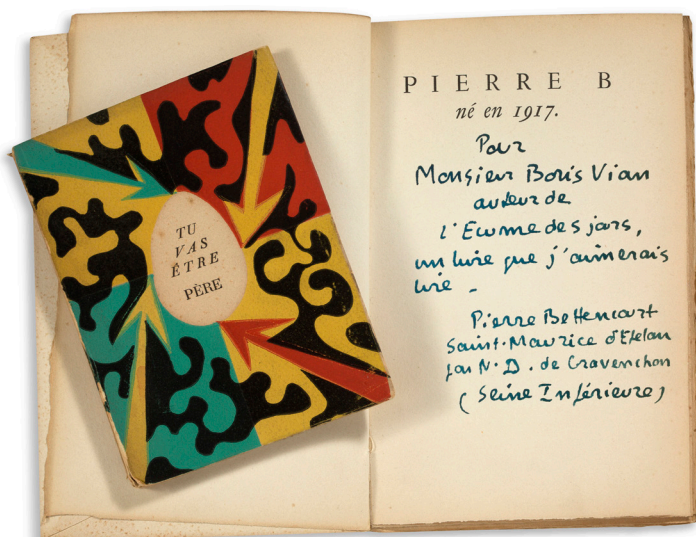 TU
VAS
ÊTRE
PÈRE
PIERRE B
né en 1917.
Pour
Monsieur Boris Vian
auteur de
l'Ecume des jours,
un livre que j'aimerais
lire -
Pierre Bettencourt
Saint-Maurice d'Etelan
par N. D. de Gravenchon
(Seine Inférieure)